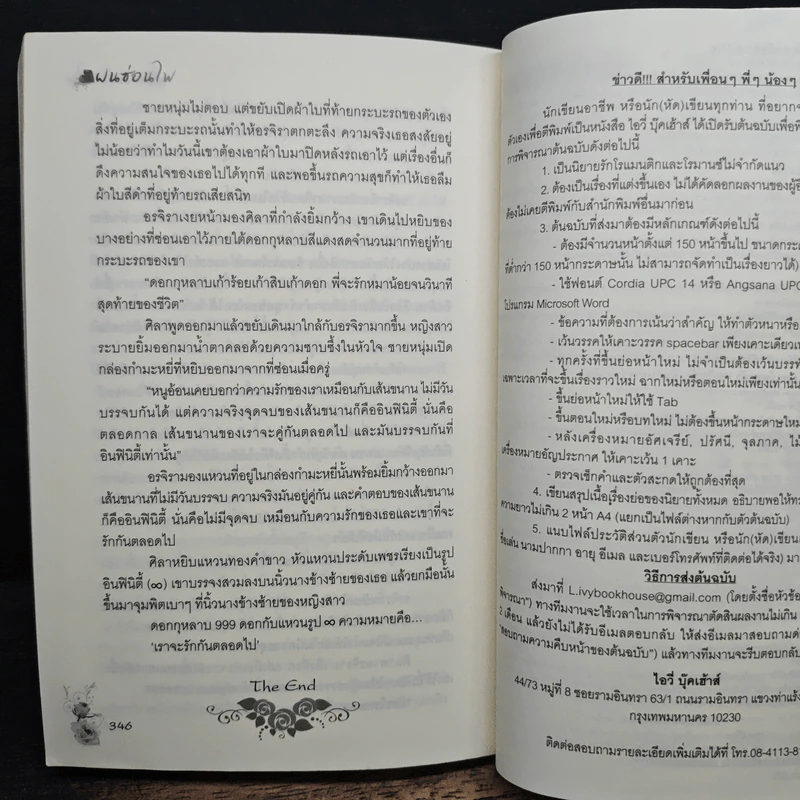 ฝนซ่อนไฟ
ชายหนุ่มไม่ตอบ แต่ขยับเปิดผ้าใบที่ท้ายกระบะรถของตัวเอง
สิ่งที่อยู่เต็มกระบะรถนั้นทำให้อรจิราตกตะลึง ความจริงเธอสงสัยอยู่
ไม่น้อยว่าทำไมวันนี้เขาต้องเอาผ้าใบมาปิดหลังรถเอาไว้ แต่เรื่องอื่นก็
ดึงความสนใจของเธอไปได้ทุกที และพอขึ้นรถความสุขก็ทำให้เธอลืม
ผ้าใบสีดำที่อยู่ท้ายรถเสียสนิท
อรจิราเงยหน้ามองศิลาที่กำลังยิ้มกว้าง เขาเดินไปหยิบของ
บางอย่างที่ซ่อนเอาไว้ภายใต้ดอกกุหลาบสีแดงสดจำนวนมากที่อยู่ท้าย
กระบะรถของเขา
“ดอกกุหลาบเก้าร้อยเก้าสิบเก้าดอก พี่จะรักหมาน้อยจนวินาที
สุดท้ายของชีวิต”
ศิลาพูดออกมาแล้วขยับเดินมาใกล้กับอรจิรามากขึ้น หญิงสาว
ระบายยิ้มออกมาน้ำตาคลอด้วยความซาบซึ้งในหัวใจ ชายหนุ่มเปิด
กล่องกำมะหยี่ที่หยิบออกมาจากที่ซ่อนเมื่อครู่
“หนูอ้อนเคยบอกว่าความรักของเราเหมือนกับเส้นขนาน ไม่มีวัน
บรรจบกันได้ แต่ความจริงจุดจบของเส้นขนานก็คืออินฟินิตี้ นั่นคือ
ตลอดกาล เส้นขนานของเราจะคู่กันตลอดไป และมันบรรจบกันที่
อินฟินิตี้เท่านั้น”
อรจิรามองแหวนที่อยู่ในกล่องกำมะหยี่นั้นพร้อมยิ้มกว้างออกมา
เส้นขนานที่ไม่มีวันบรรจบ ความจริงมันอยู่คู่กัน และคำตอบของเส้นขนาน
ก็คืออินฟินิตี้ นั่นคือไม่มีจุดจบ เหมือนกับความรักของเธอและเขาที่จะ
รักกันตลอดไป
ศิลาหยิบแหวนทองคำขาว หัวแหวนประดับเพชรเรียงเป็นรูป
อินฟินิตี้ (∞) เขาบรรจงสวมลงบนนิ้วนางข้างซ้ายของเธอ แล้วยกมือนั้น
ขึ้นมาจุมพิตเบาๆ ที่นิ้วนางข้างซ้ายของหญิงสาว
ดอกกุหลาบ 999 ดอกกับแหวนรูป ∞ ความหมายคือ...
‘เราจะรักกันตลอดไป’
The End
346
ข่าวดี!!! สำหรับเพื่อนๆ พี่ๆ น้องๆ
นักเขียนอาชีพ หรือนัก(หัด)เขียนทุกท่าน ที่อยาก
ตัวเองเพื่อตีพิมพ์เป็นหนังสือ ไอวี่ บุ๊คเฮ้าส์ ได้เปิดรับต้นฉบับเพื่อพิ
การพิจารณาต้นฉบับดังต่อไปนี้
1. เป็นนิยายรักโรแมนติกและโรมานซ์ไม่จำกัดแนว
2. ต้องเป็นเรื่องที่แต่งขึ้นเอง ไม่ได้คัดลอกผลงานของผู้อื่
ต้องไม่เคยตีพิมพ์กับสำนักพิมพ์อื่นมาก่อน
3. ต้นฉบับที่ส่งมาต้องมีหลักเกณฑ์ดังต่อไปนี้
- ต้องมีจำนวนหน้าตั้งแต่ 150 หน้าขึ้นไป ขนาดกระ
ที่ต่ำกว่า 150 หน้ากระดาษนั้น ไม่สามารถจัดทำเป็นเรื่องยาวได้)
- ใช้ฟอนต์ Cordia UPC 14 หรือ Angsana UPC
โปรแกรม Microsoft Word
- ข้อความที่ต้องการเน้นว่าสำคัญ ให้ทำตัวหนาหรือ
- เว้นวรรคให้เคาะวรรค spacebar เพียงเคาะเดียวเท่
- ทุกครั้งที่ขึ้นย่อหน้าใหม่ ไม่จำเป็นต้องเว้นบรรทั
เฉพาะเวลาที่จะขึ้นเรื่องราวใหม่ ฉากใหม่หรือตอนใหม่เพียงเท่านั้น
- ขึ้นย่อหน้าใหม่ให้ใช้ Tab
- ขึ้นตอนใหม่หรือบทใหม่ ไม่ต้องขึ้นหน้ากระดาษใหม่
- หลังเครื่องหมายอัศเจรีย์, ปรัศนี, จุลภาค, ไม้
เครื่องหมายอัญประกาศ ให้เคาะเว้น 1 เคาะ
- ตรวจเช็กคำและตัวสะกดให้ถูกต้องที่สุด
4. เขียนสรุปเนื้อเรื่องย่อของนิยายทั้งหมด อธิบายพอให้ทรา
ความยาวไม่เกิน 2 หน้า A4 (แยกเป็นไฟล์ต่างหากกับตัวต้นฉบับ)
5. แนบไฟล์ประวัติส่วนตัวนักเขียน หรือนัก(หัด)เขียน
ชื่อเล่น นามปากกา อายุ อีเมล และเบอร์โทรศัพท์ที่ติดต่อได้จริง) มา
วิธีการส่งต้นฉบับ
ส่งมาที่ L.ivybookhouse@gmail.com (โดยตั้งชื่อหัวข้อ
พิจารณา") ทางทีมงานจะใช้เวลาในการพิจารณาตัดสินผลงานไม่เกิน
2 เดือน แล้วยังไม่ได้รับอีเมลตอบกลับ ให้ส่งอีเมลมาสอบถามด่
"สอบถามความคืบหน้าของต้นฉบับ") แล้วทางทีมงานจะรีบตอบกลับ
ไอวี่ บุ๊คเฮ้าส์
44/73 หมู่ที่ 8 ซอยรามอินทรา 63/1 ถนนรามอินทรา แขวงท่าแร้ง
กรุงเทพมหานคร 10230
ติดต่อสอบถามรายละเอียดเพิ่มเติมได้ที่ โทร.08-4113-8